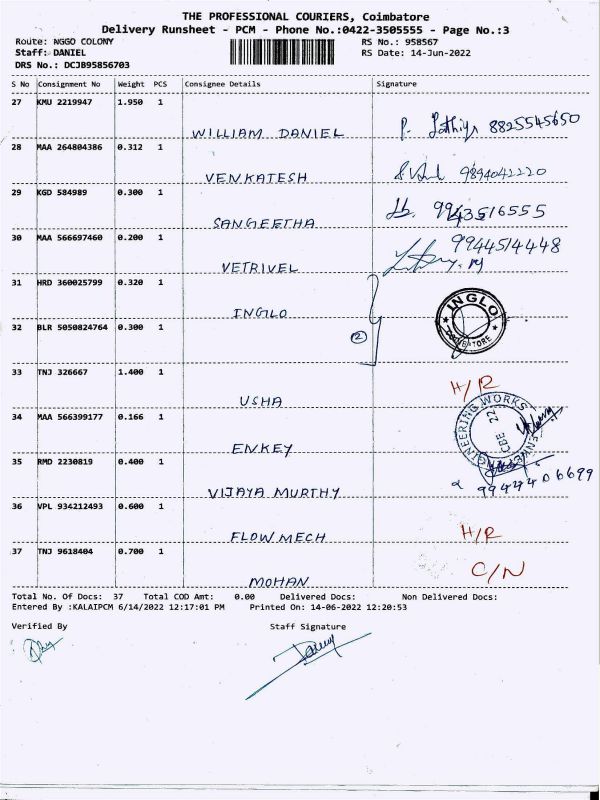 THE PROFESSIONAL COURIERS, Coimbatore
Delivery Runsheet - PCM - Phone No.:0422-3505555 - Page No.:3
Route: NGGO COLONY RS No.: 958567
Staff: DANIEL RS Date: 14-Jun-2022
DRS No.: DCJB95856703
S No Consignment No Weight PCS Consignee Details Signature
27 KMU 2219947 1.950 1
WILLIAM DANIEL P. 8825545650
28 MAA 264804386 0.312 1
VENKATESH 9894042220
29 KGD 584989 0.300 1
SANGEETHA 9943516555
30 MAA 566697460 0.200 1
VETRIVEL 9944514448
31 HRD 360025799 0.320 1
INGLO INGLO
32 BLR 5050824764 0.300 1
2
33 TNJ 326667 1.400 1
USHA H/R
34 MAA 566399177 0.166 1
ENKEY ENGINEERING WORKS CBE 22
35 RMD 2230819 0.400 1
VIJAYA MURTHY 9944406699
36 VPL 934212493 0.600 1
FLOWMECH H/R
37 TNJ 9618404 0.700 1
MOHAN C/N
Total No. Of Docs: 37 Total COD Amt: 0.00 Delivered Docs: Non Delivered Docs:
Entered By :KALAIPCM 6/14/2022 12:17:01 PM Printed On: 14-06-2022 12:20:53
Verified By Staff Signature